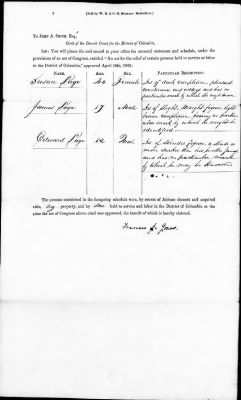 2 [Sold by W. H. & O. H. Morrison, Booksellers.]
To JOHN A. SMITH Esq.,
Clerk of the Circuit Court for the District of Columbia.
SIR: You will please file and record in your office the annexed statement and schedule, under the
provisions of an act of Congress, entitled "An act for the release of certain persons held to service or labor
in the District of Columbia," approved April 16th, 1862:
NAME. AGE. SEX. PARTICULAR DESCRIPTION.
Susan Page Female Is of dark complexion pleasant
countenance and and has no
particular mark by which
James Page 17 Male Is of slight, straight figure light
brown complexion, having no particu-
lar mark by which he might be
identified
Edward Page 12 Male Is of slender figure, a shade or
more darker than his brother James
and has no particular mark
by which he may be known
The persons mentioned in the foregoing schedule were, by reason of African descent and acquired
title, my property, and by me held to service and labor in the District of Columbia at the
time the act of Congress above cited was approved, the benefit of which is hereby claimed.
Francis A. Jones.